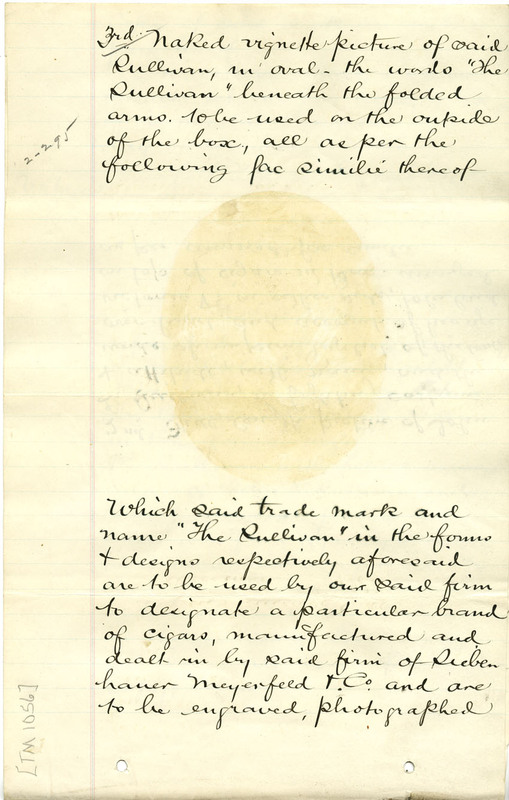 3rd. Naked vignette picture of said
Sullivan, in oval - the words "The
Sullivan" beneath the folded
arms. to be used on the outside
of the box, all as per the
following fac similie thereof
2-295
Which said trade mark and
name "The Sullivan" in the forms
& designs respectively aforesaid
are to be used by our said firm
to designate a particular brand
of cigars, manufactured and
dealt in by said firm of Sieben
hauer Meyerfeld & Co. and are
to be engraved, photographed
[TM 1056]